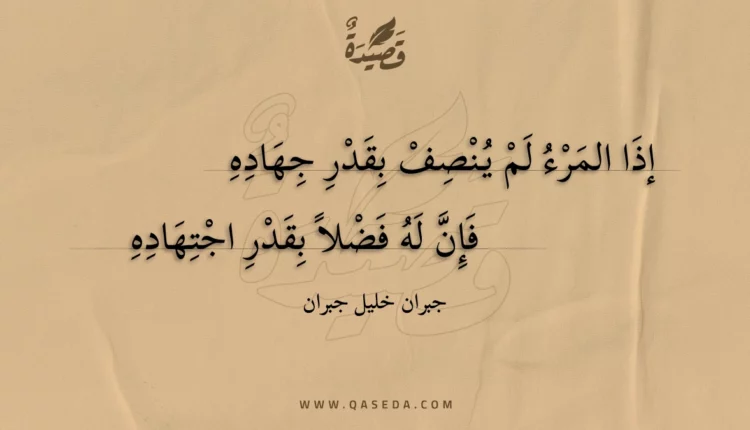 قَصِيدَةٌ
إذَا المَرْءُ لَمْ يُنْصِفْ بِقَدْرِ جِهَادِهِ
فَإِنَّ لَهُ فَضْلاً بِقَدْرِ اجْتِهَادِهِ
جبران خليل جبران
WWW.QASEDA.COM